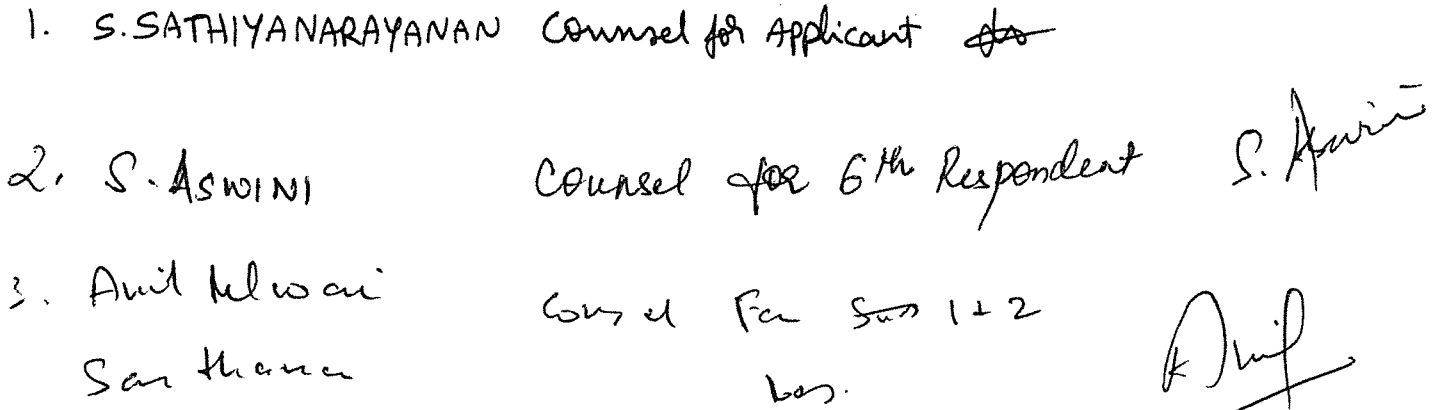 1. S.SATHIYANARAYANAN Counsel for Applicant
2. S. ASWINI Counsel for 6th Respondent S. Aswini
3. Anil 1 + 2 Anil
Santhana